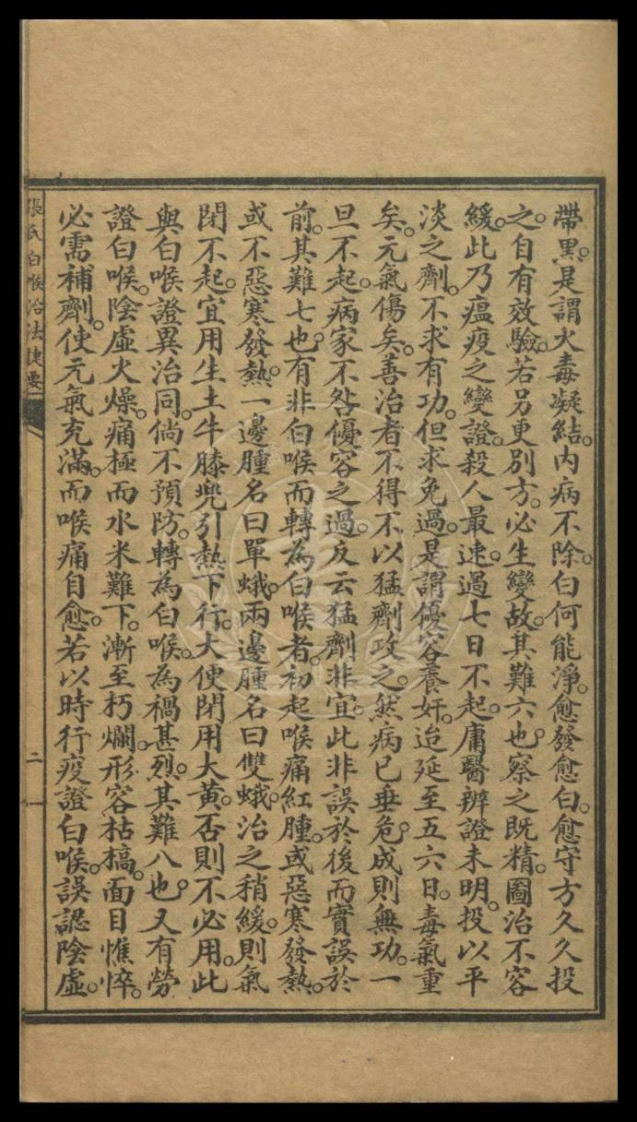 帶黑。是謂火毒凝結。內病不除。白何能淨。愈發愈白。愈守方久久投
之。自有效驗。若另更別方。必生變故。其難六也。察之旣精。圖治不容
緩。此乃瘟疫之變證。殺人最速。過七日不起。庸醫辨證未明。投以平
淡之劑。不求有功。但求免過。是謂優容養奸。迨延至五六日。毒氣重
矣。元氣傷矣。善治者不得不以猛劑攻之。然病已垂危。成則無功。一
旦不起。病家不咎優容之過。反云猛劑非宜。此非誤於後而實誤於
前。其難七也。有非白喉而轉為白喉者。初起喉痛紅腫。或惡寒發熱。
或不惡寒發熱。一邊腫名曰單蛾。兩邊腫名曰雙蛾。治之稍緩。則氣
閉不起。宜用生土牛膝兜引熱下行。大便閉用大黃。否則不必用。此
與白喉證異治同。倘不預防。轉為白喉。為禍甚烈。其難八也。又有勞
證白喉。陰虛火燥。痛極而水米難下。漸至朽爛。形容枯槁。面目憔悴。
必需補劑。使元氣充滿。而喉痛自愈。若以時行疫證白喉。誤認陰虛。
張氏白喉治法捷要
二